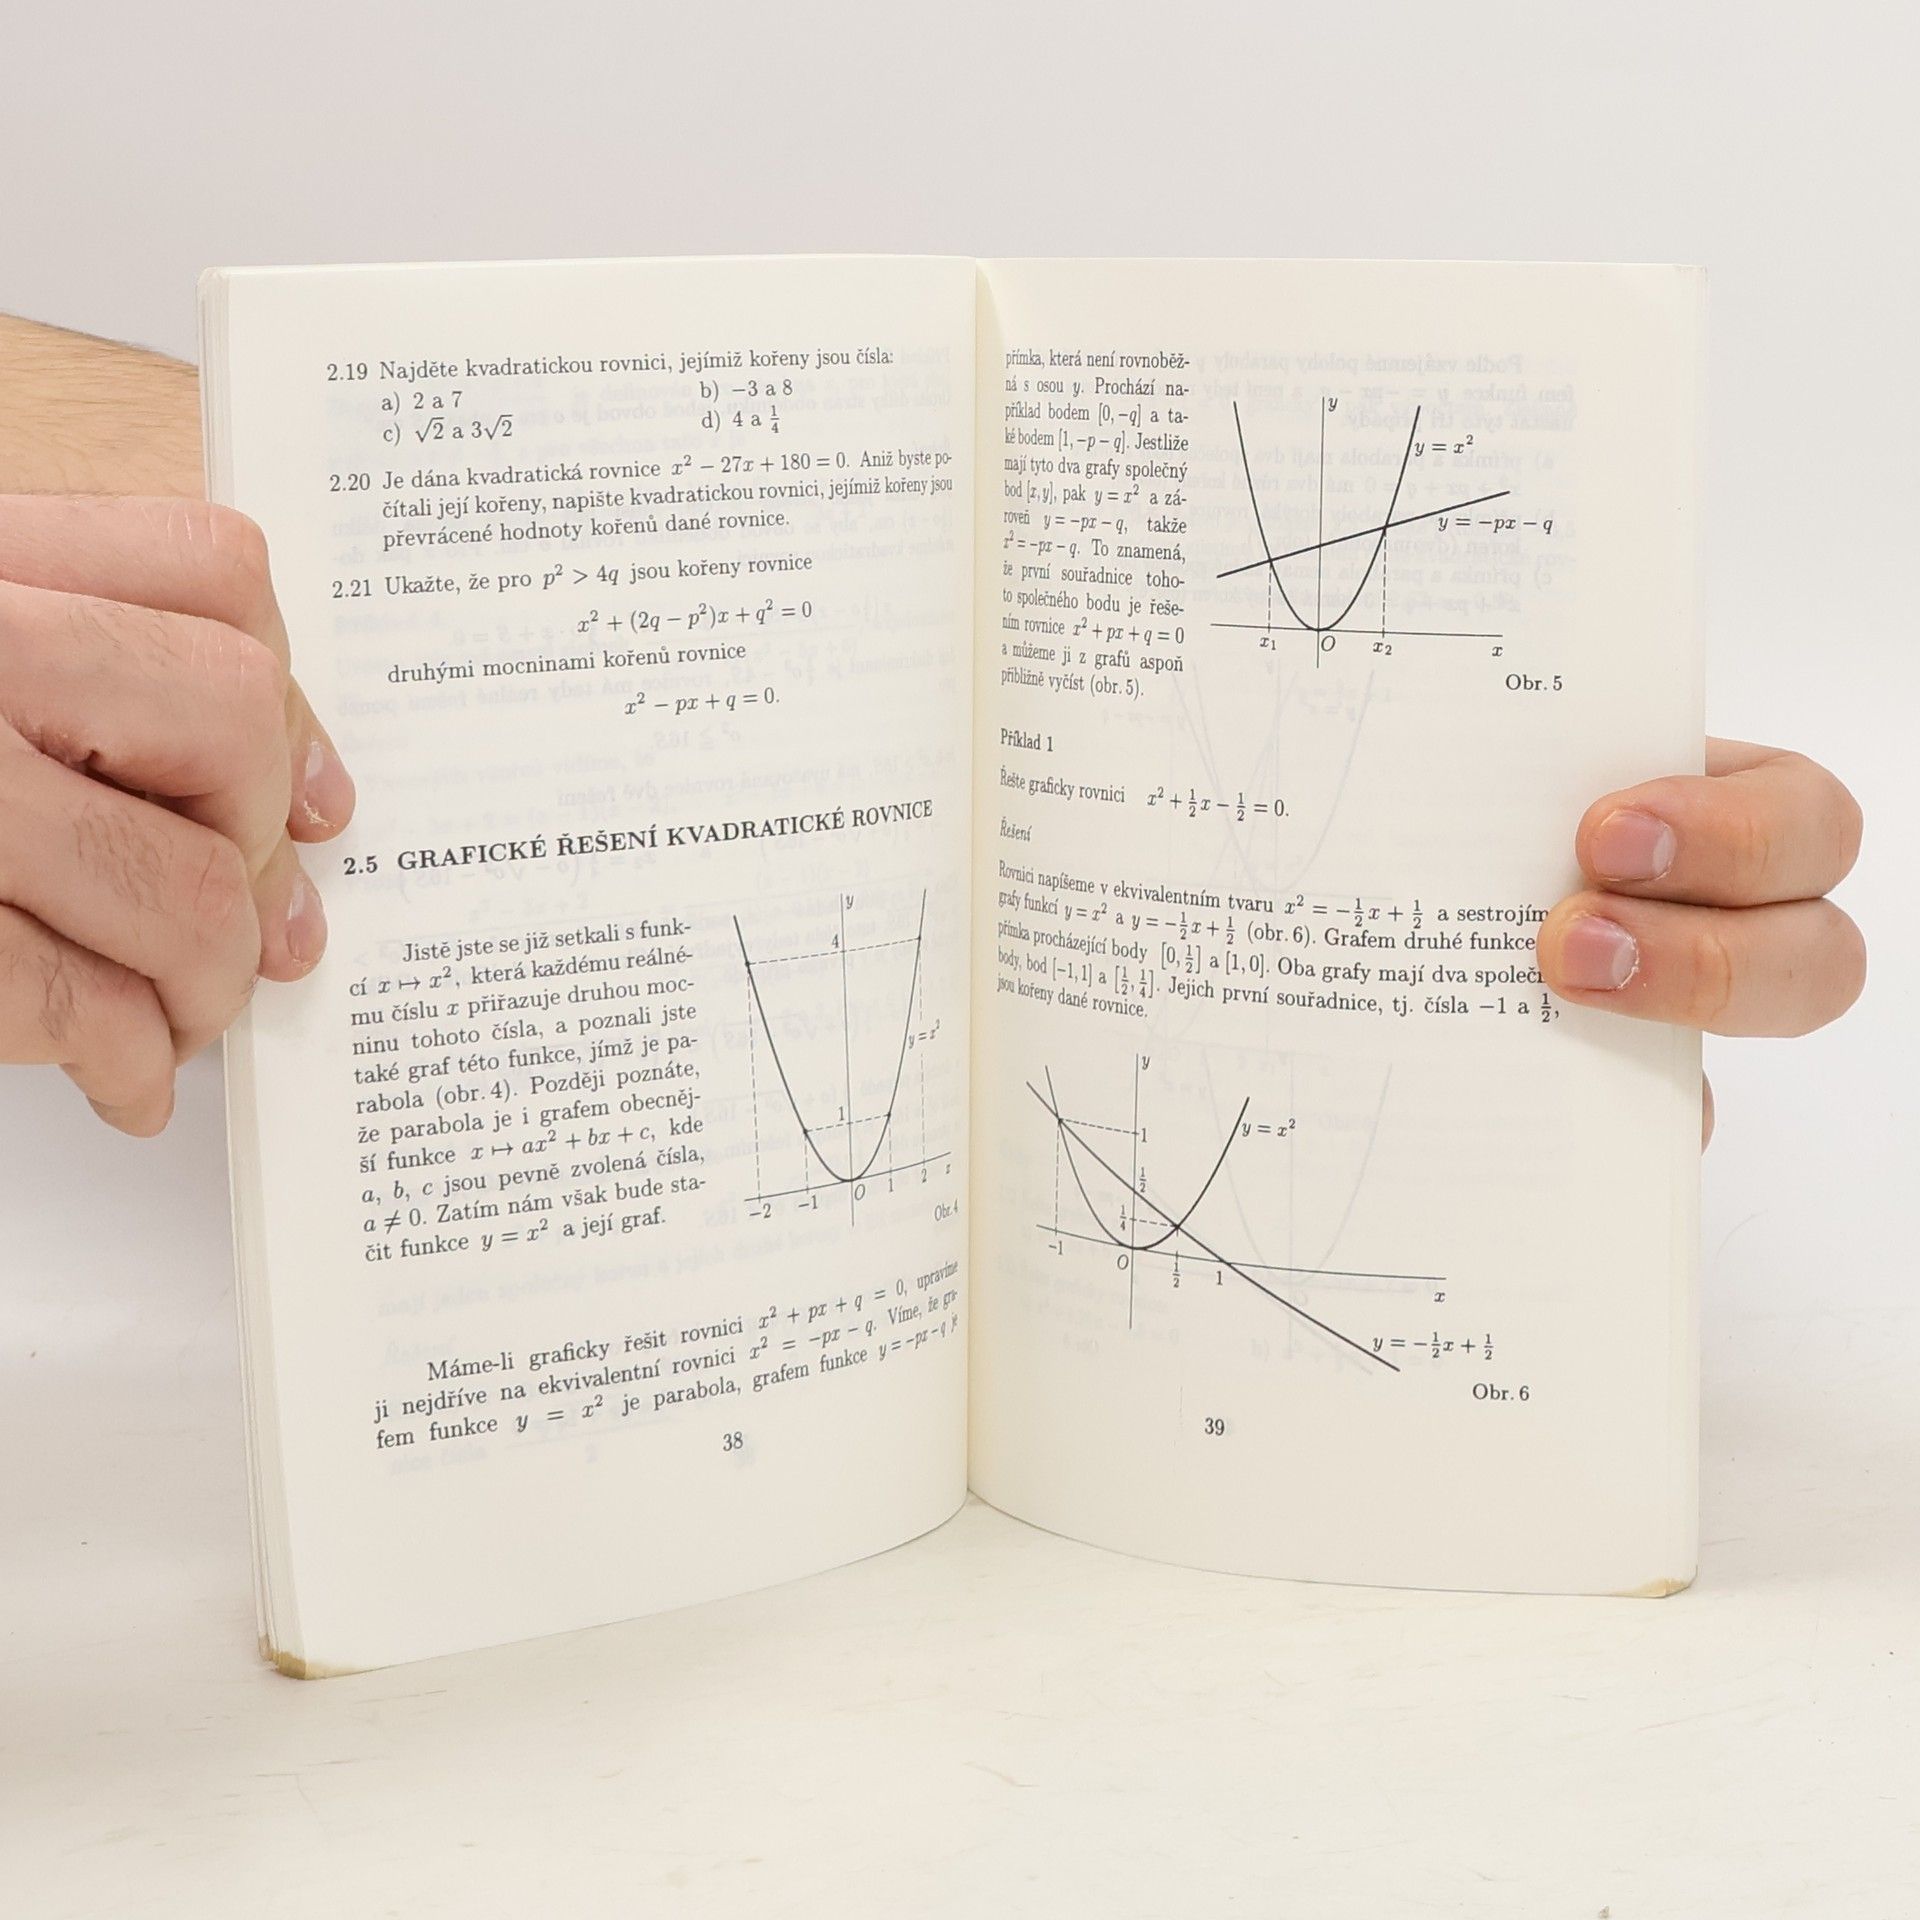 2.19 Najděte kvadratickou rovnici, jejímiž kořeny jsou čísla:
a) 2 a 7
b) −3 a 8
c) √2 a 3√2
d) 4 a 1/4
2.20 Je dána kvadratická rovnice x² − 27x + 180 = 0. Aniž byste po-
čítali její kořeny, napište kvadratickou rovnici, jejímiž kořeny jsou
převrácené hodnoty kořenů dané rovnice.
2.21 Ukažte, že pro p² > 4q jsou kořeny rovnice
x² + (2q − p²)x + q² = 0
druhými mocninami kořenů rovnice
x² − px + q = 0.
2.5 GRAFICKÉ ŘEŠENÍ KVADRATICKÉ ROVNICE
Jistě jste se již setkali s funk-
cí x ↦ x², která každému reálné-
mu číslu x přiřazuje druhou moc-
ninu tohoto čísla, a poznali jste
také graf této funkce, jímž je pa-
rabola (obr. 4). Později poznáte,
že parabola je i grafem obecněj-
ší funkce x ↦ ax² + bx + c, kde
a, b, c jsou pevně zvolená čísla,
a ≠ 0. Zatím nám však bude sta-
čit funkce y = x² a její graf.
y
4
y = x²
1
−2 −1 O 1 2 x
Obr. 4
Máme-li graficky řešit rovnici x² + px + q = 0, upravíme
ji nejdříve na ekvivalentní rovnici x² = −px − q. Víme, že gra-
fem funkce y = x² je parabola, grafem funkce y = −px − q je
38
přímka, která není rovnoběž-
ná s osou y. Prochází na-
příklad bodem [0, −q] a ta-
ké bodem [1, −p − q]. Jestliže
mají tyto dva grafy společný
bod [x, y], pak y = x² a zá-
roveň y = −px − q, takže
x² = −px − q. To znamená,
že první souřadnice toho-
to společného bodu je řeše-
ním rovnice x² + px + q = 0
a můžeme ji z grafů aspoň
přibližně vyčíst (obr. 5).
y
y = x²
y = −px − q
x₁ O x₂ x
Obr. 5
Příklad 1
Řešte graficky rovnici x² + 1/2x − 1/2 = 0.
Řešení
Rovnici napíšeme v ekvivalentním tvaru x² = −1/2x + 1/2 a sestrojím
grafy funkcí y = x² a y = −1/2x + 1/2 (obr. 6). Grafem druhé funkce
přímka procházející body [0, 1/2] a [1, 0]. Oba grafy mají dva společn
body, bod [−1, 1] a [1/2, 1/4]. Jejich první souřadnice, tj. čísla −1 a 1/2,
jsou kořeny dané rovnice.
y
1
y = x²
1/2
1/4
−1 O 1/2 1 x
y = −1/2x + 1/2
Obr. 6
39